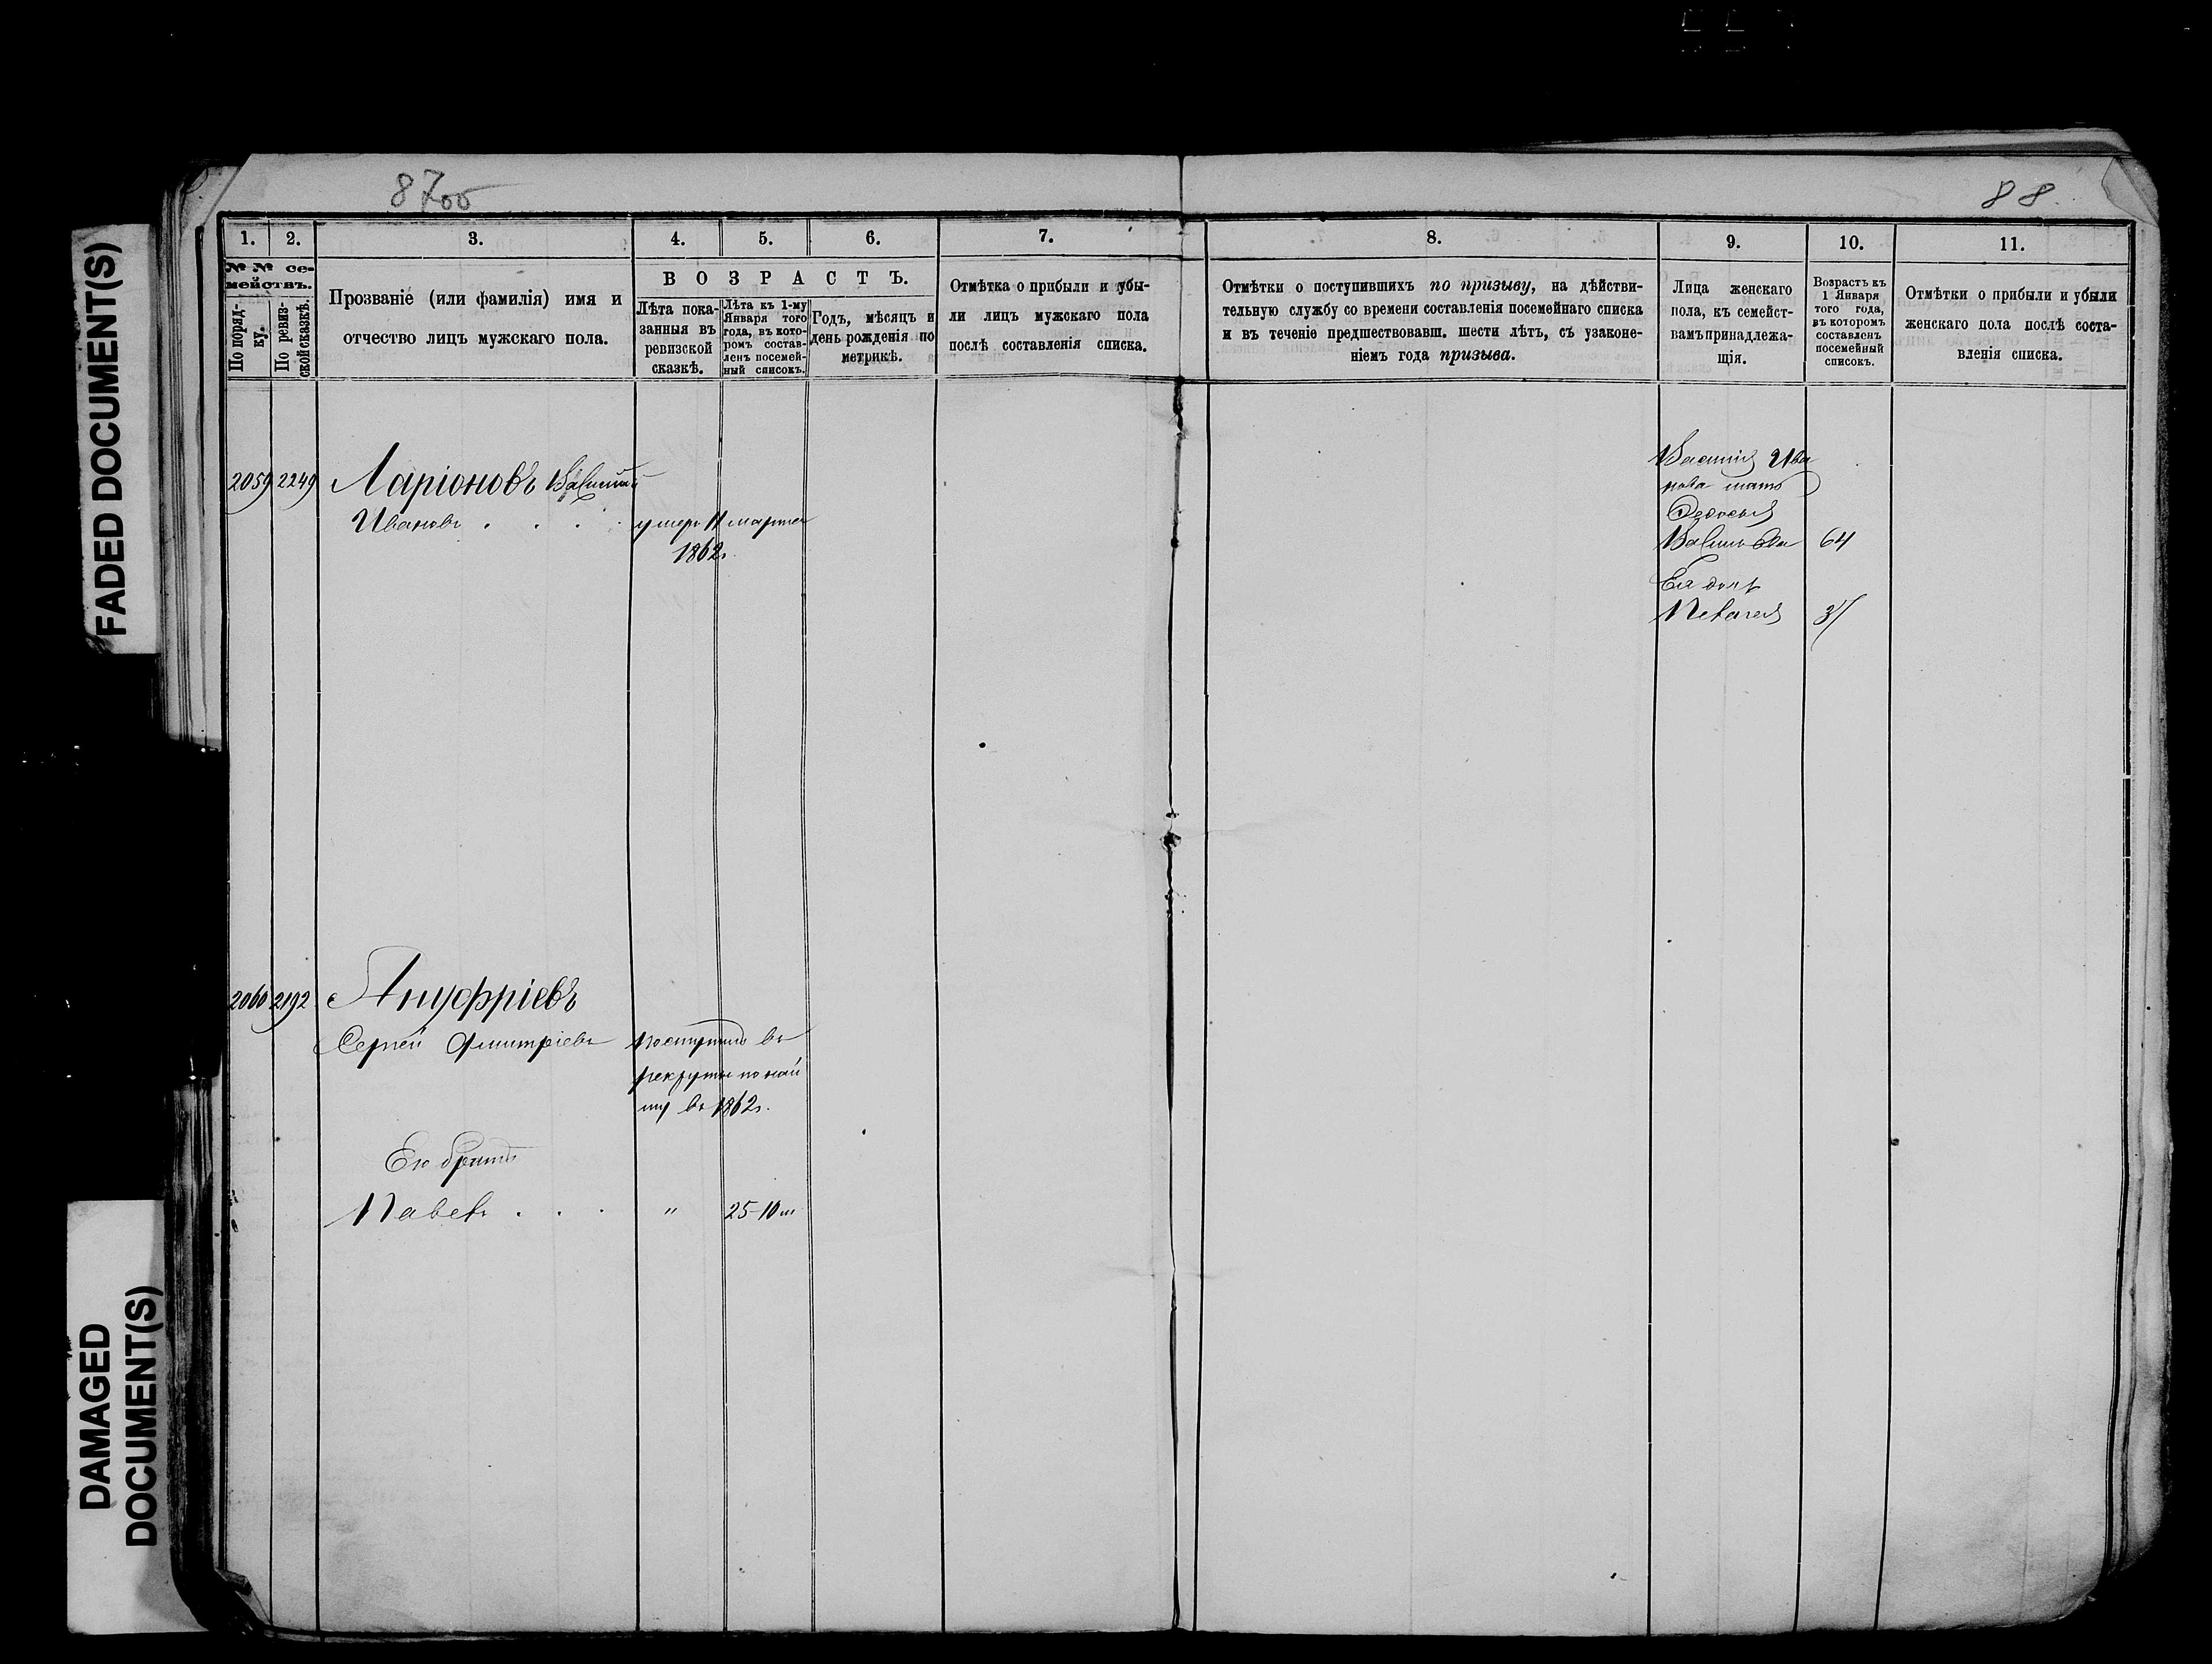 87об
88
1.
2.
3.
4.
5.
6.
7.
8.
9.
10.
11.
№ № се-
мействъ.
По поряд-
ку.
По ревиз-
ской сказкѣ.
Прозваніе (или фамилія) имя и
отчество лицъ мужскаго пола.
ВОЗРАСТЪ.
Лѣта пока-
занныя въ
ревизской
сказкѣ.
Лѣта къ 1-му
Января того
года, въ кото-
ромъ состав-
ленъ посемей-
ный списокъ.
Годъ, мѣсяцъ и
день рожденія по
метрикѣ.
Отмѣтка о прибыли и убы-
ли лицъ мужскаго пола
послѣ составленія списка.
Отмѣтки о поступившихъ по призыву, на дѣйстви-
тельную службу со времени составленія посемейнаго списка
и въ теченіе предшествовавш. шести лѣтъ, съ узаконе-
ніемъ года призыва.
Лица женскаго
пола, къ семейст-
вамъ принадлежа-
щія.
Возрастъ къ
1 Января
того года,
въ которомъ
составленъ
посемейный
списокъ.
Отмѣтки о прибыли и убыли
женскаго пола послѣ соста-
вленія списка.
2059 2249 Ларіоновъ Василій
Ивановъ . . . . умеръ 11 марта
1862г.
Василія Ива
нова мать
Федосья
Васильева 64
Ея дочь
Пелагея 37
2060 2192 Ануфріевъ
Сергей Дмитріевъ поступилъ въ
рекруты по най
му въ 1862г.
Его братъ
Павелъ . . . " 25-10м
FADED DOCUMENT(S)
DAMAGED
DOCUMENT(S)